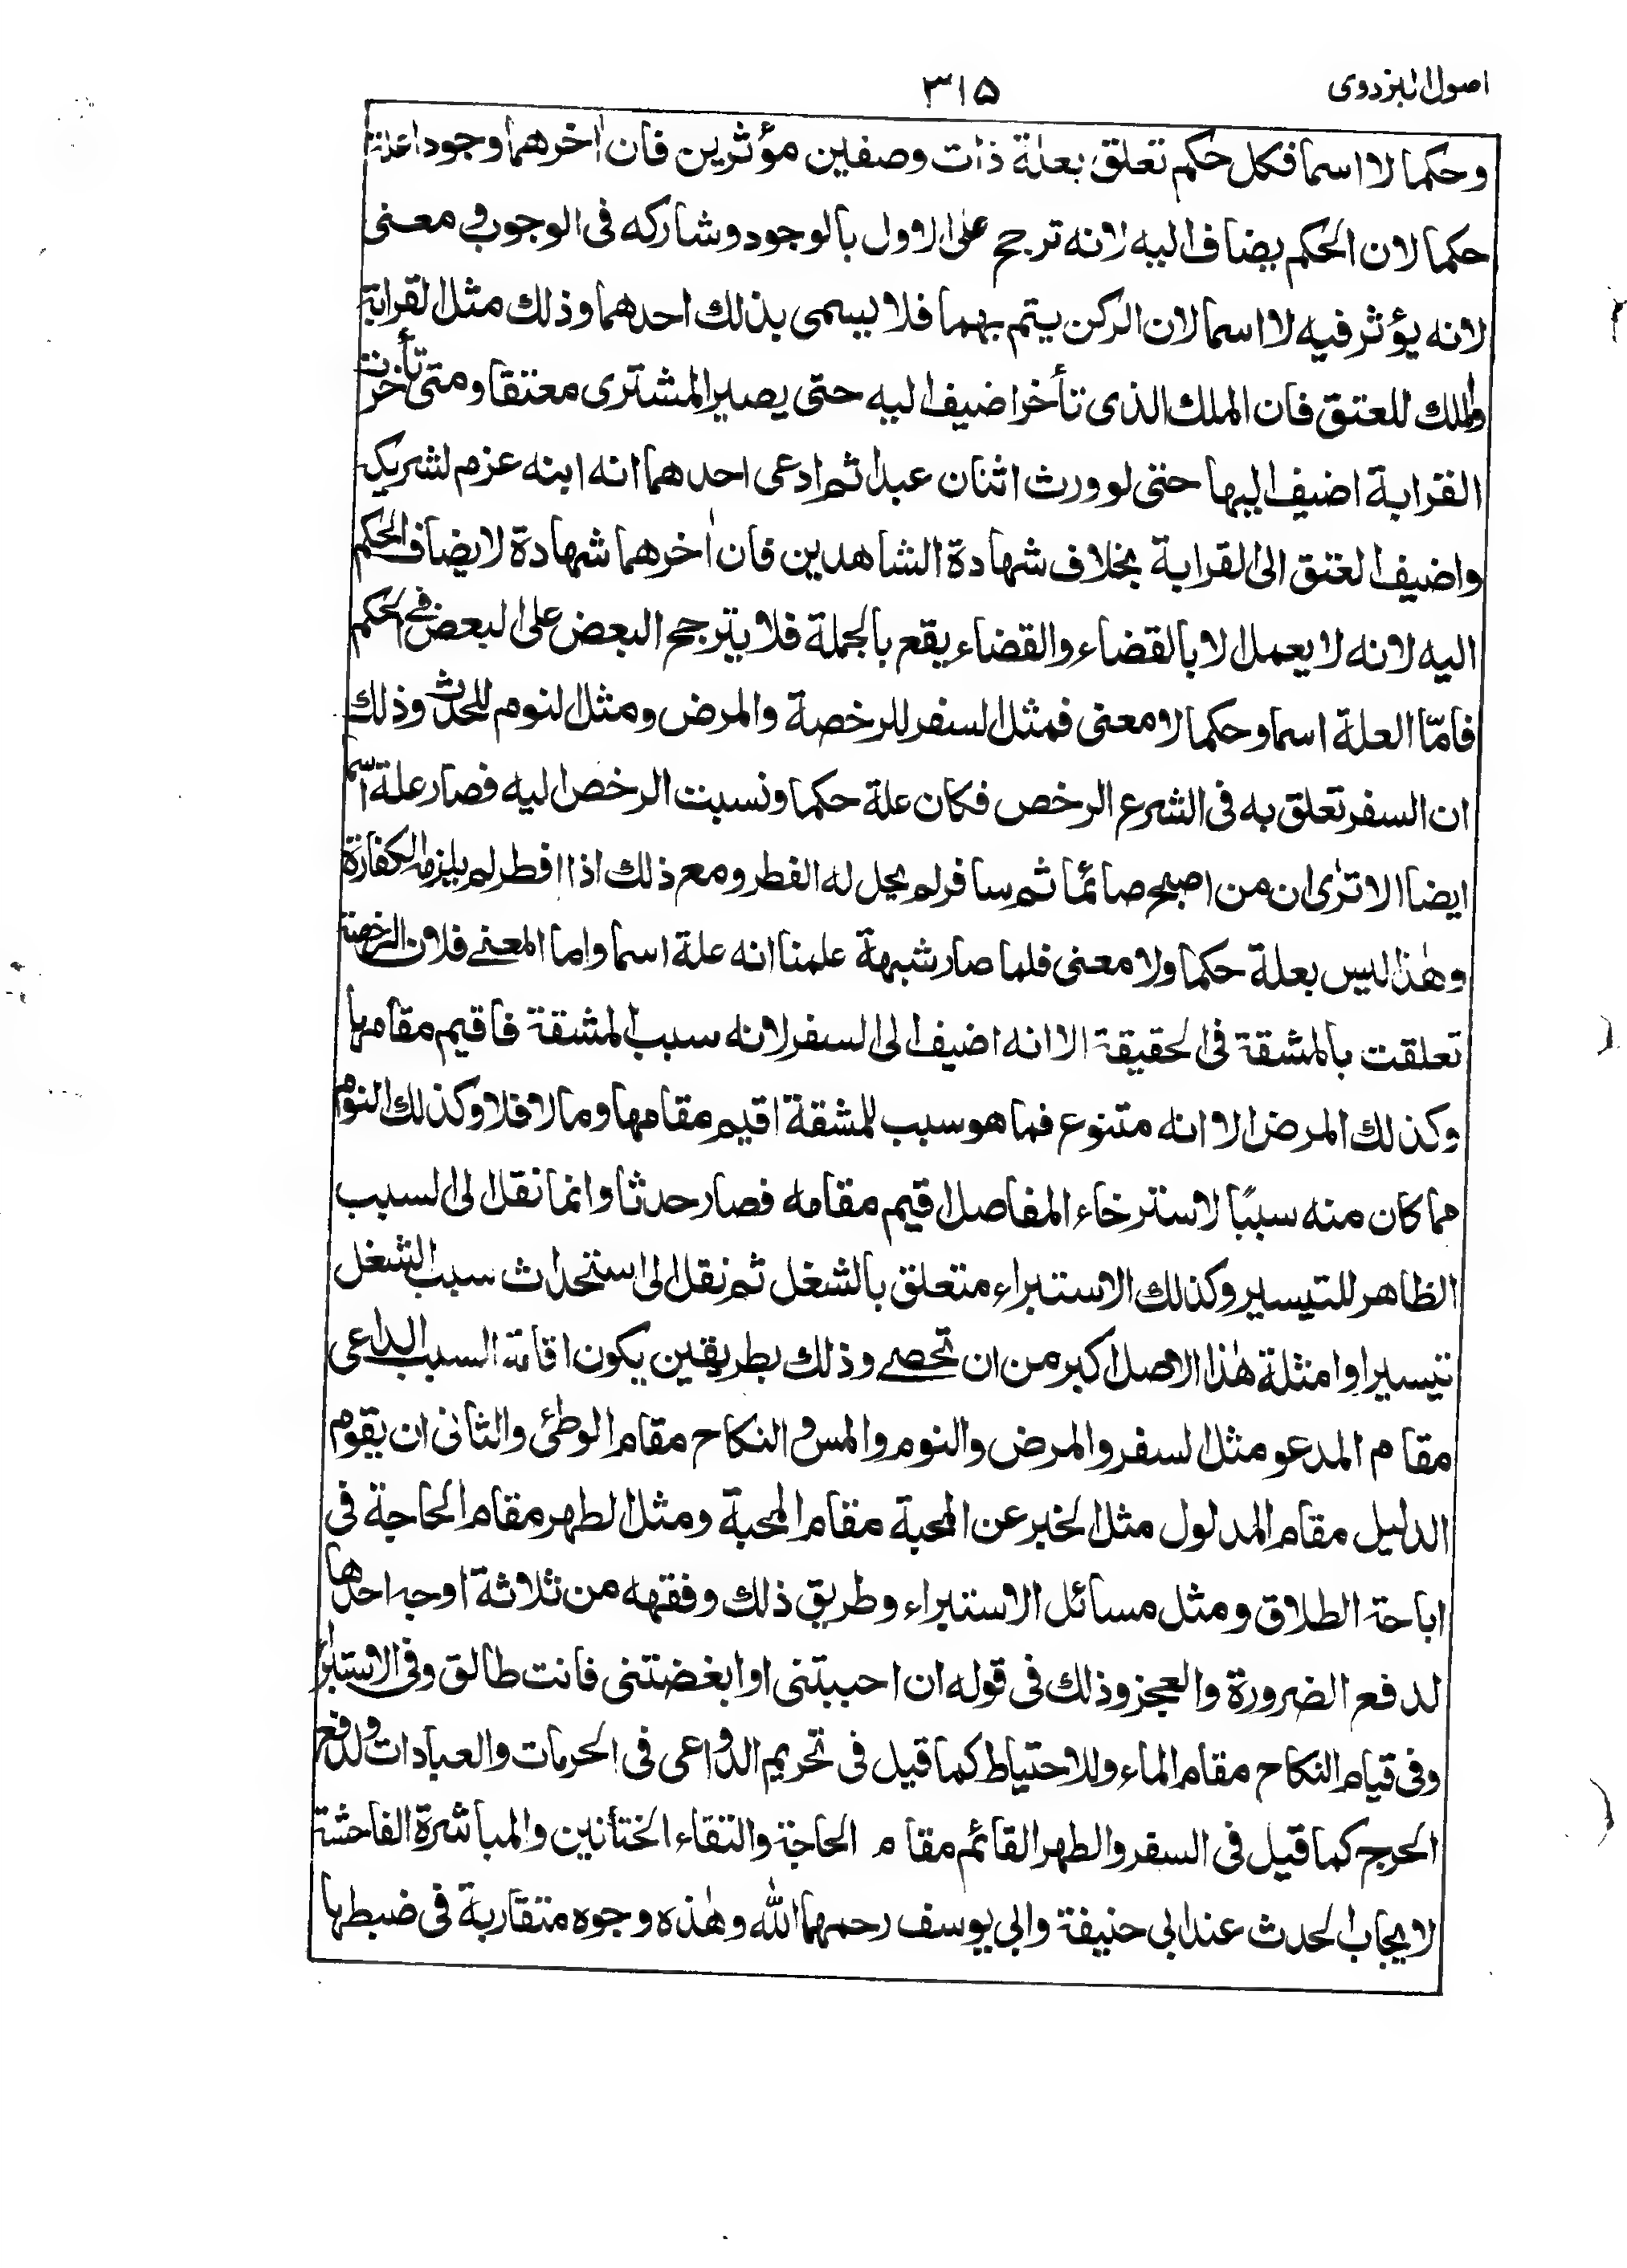 اصول البزدوی
۳۱۵
وحكما لا اسما فكل حكم تعلق بعلة ذات وصفين مؤثرين فان اٰخرهما وجودا علة
حكما لان الحكم يضاف اليه لانه ترجح على الاول بالوجود وشاركه فى الوجوب ومعنى
لانه يؤثر فيه لا اسما لان الركن يتم بهما فلا يسمى بذلك احدهما وذلك مثل القرابة
والملك للعتق فان الملك الذى تأخر اضيف اليه حتى يصير المشترى معتقا ومتى تأخرت
القرابة اضيف اليها حتى لو ورث اثنان عبدا ثم ادعى احدهما انه ابنه غرم لشريكه
واضيف العتق الى القرابة بخلاف شهادة الشاهدين فان اٰخرهما شهادة لا يضاف الحكم
اليه لانه لا يعمل الا بالقضاء والقضاء يقع بالجملة فلا يترجح البعض على البعض فى الحكم
فامّا العلة اسما وحكما لا معنى فمثل السفر للرخصة والمرض ومثل النوم للحدث وذلك
ان السفر تعلق به فى الشرع الرخص فكان علة حكما ونسبت الرخص اليه فصار علة اسما
ايضا الا ترٰى ان من اصبح صائما ثم سافر لم يحل له الفطر ومع ذلك اذا افطر لم يلزمه الكفارة
وهٰذا ليس بعلة حكما ولا معنى فلما صار شبهة علمنا انه علة اسما واما المعنى فلان الرخصة
تعلقت بالمشقة فى الحقيقة الا انه اضيف الى السفر لانه سبب المشقة فاقيم مقامها
وكذلك المرض الا انه متنوع فما هو سبب للمشقة اقيم مقامها وما لا فلا وكذلك النوم
مما كان منه سببًا لاسترخاء المفاصل اقيم مقامه فصار حدثا وانما نقل الى السبب
الظاهر للتيسير وكذلك الاستبراء متعلق بالشغل ثم نقل الى استحداث سبب الشغل
تيسيرا وامثلة هٰذا الاصل اكبر من ان تحصى وذلك بطريقين يكون اقامة السبب الداعى
مقام المدعو مثل السفر والمرض والنوم والمس والنكاح مقام الوطئ والثانى ان يقوم
الدليل مقام المدلول مثل الخبر عن المحبة مقام المحبة ومثل الطهر مقام الحاجة فى
اباحة الطلاق ومثل مسائل الاستبراء وطريق ذلك وفقهه من ثلاثة اوجه احدها
لدفع الضرورة والعجز وذلك فى قوله ان احببتنى او ابغضتنى فانت طالق وفى الاستبراء
وفى قيام النكاح مقام الماء وللاحتياط كما قيل فى تحريم الدواعى فى الحرمات والعبادات ولدفع
الحرج كما قيل فى السفر والطهر القائم مقام الحاجة والتقاء الختانين والمباشرة الفاحشة
لايجاب الحدث عند ابى حنيفة وابى يوسف رحمهما الله وهٰذه وجوه متقاربة فى ضبطها